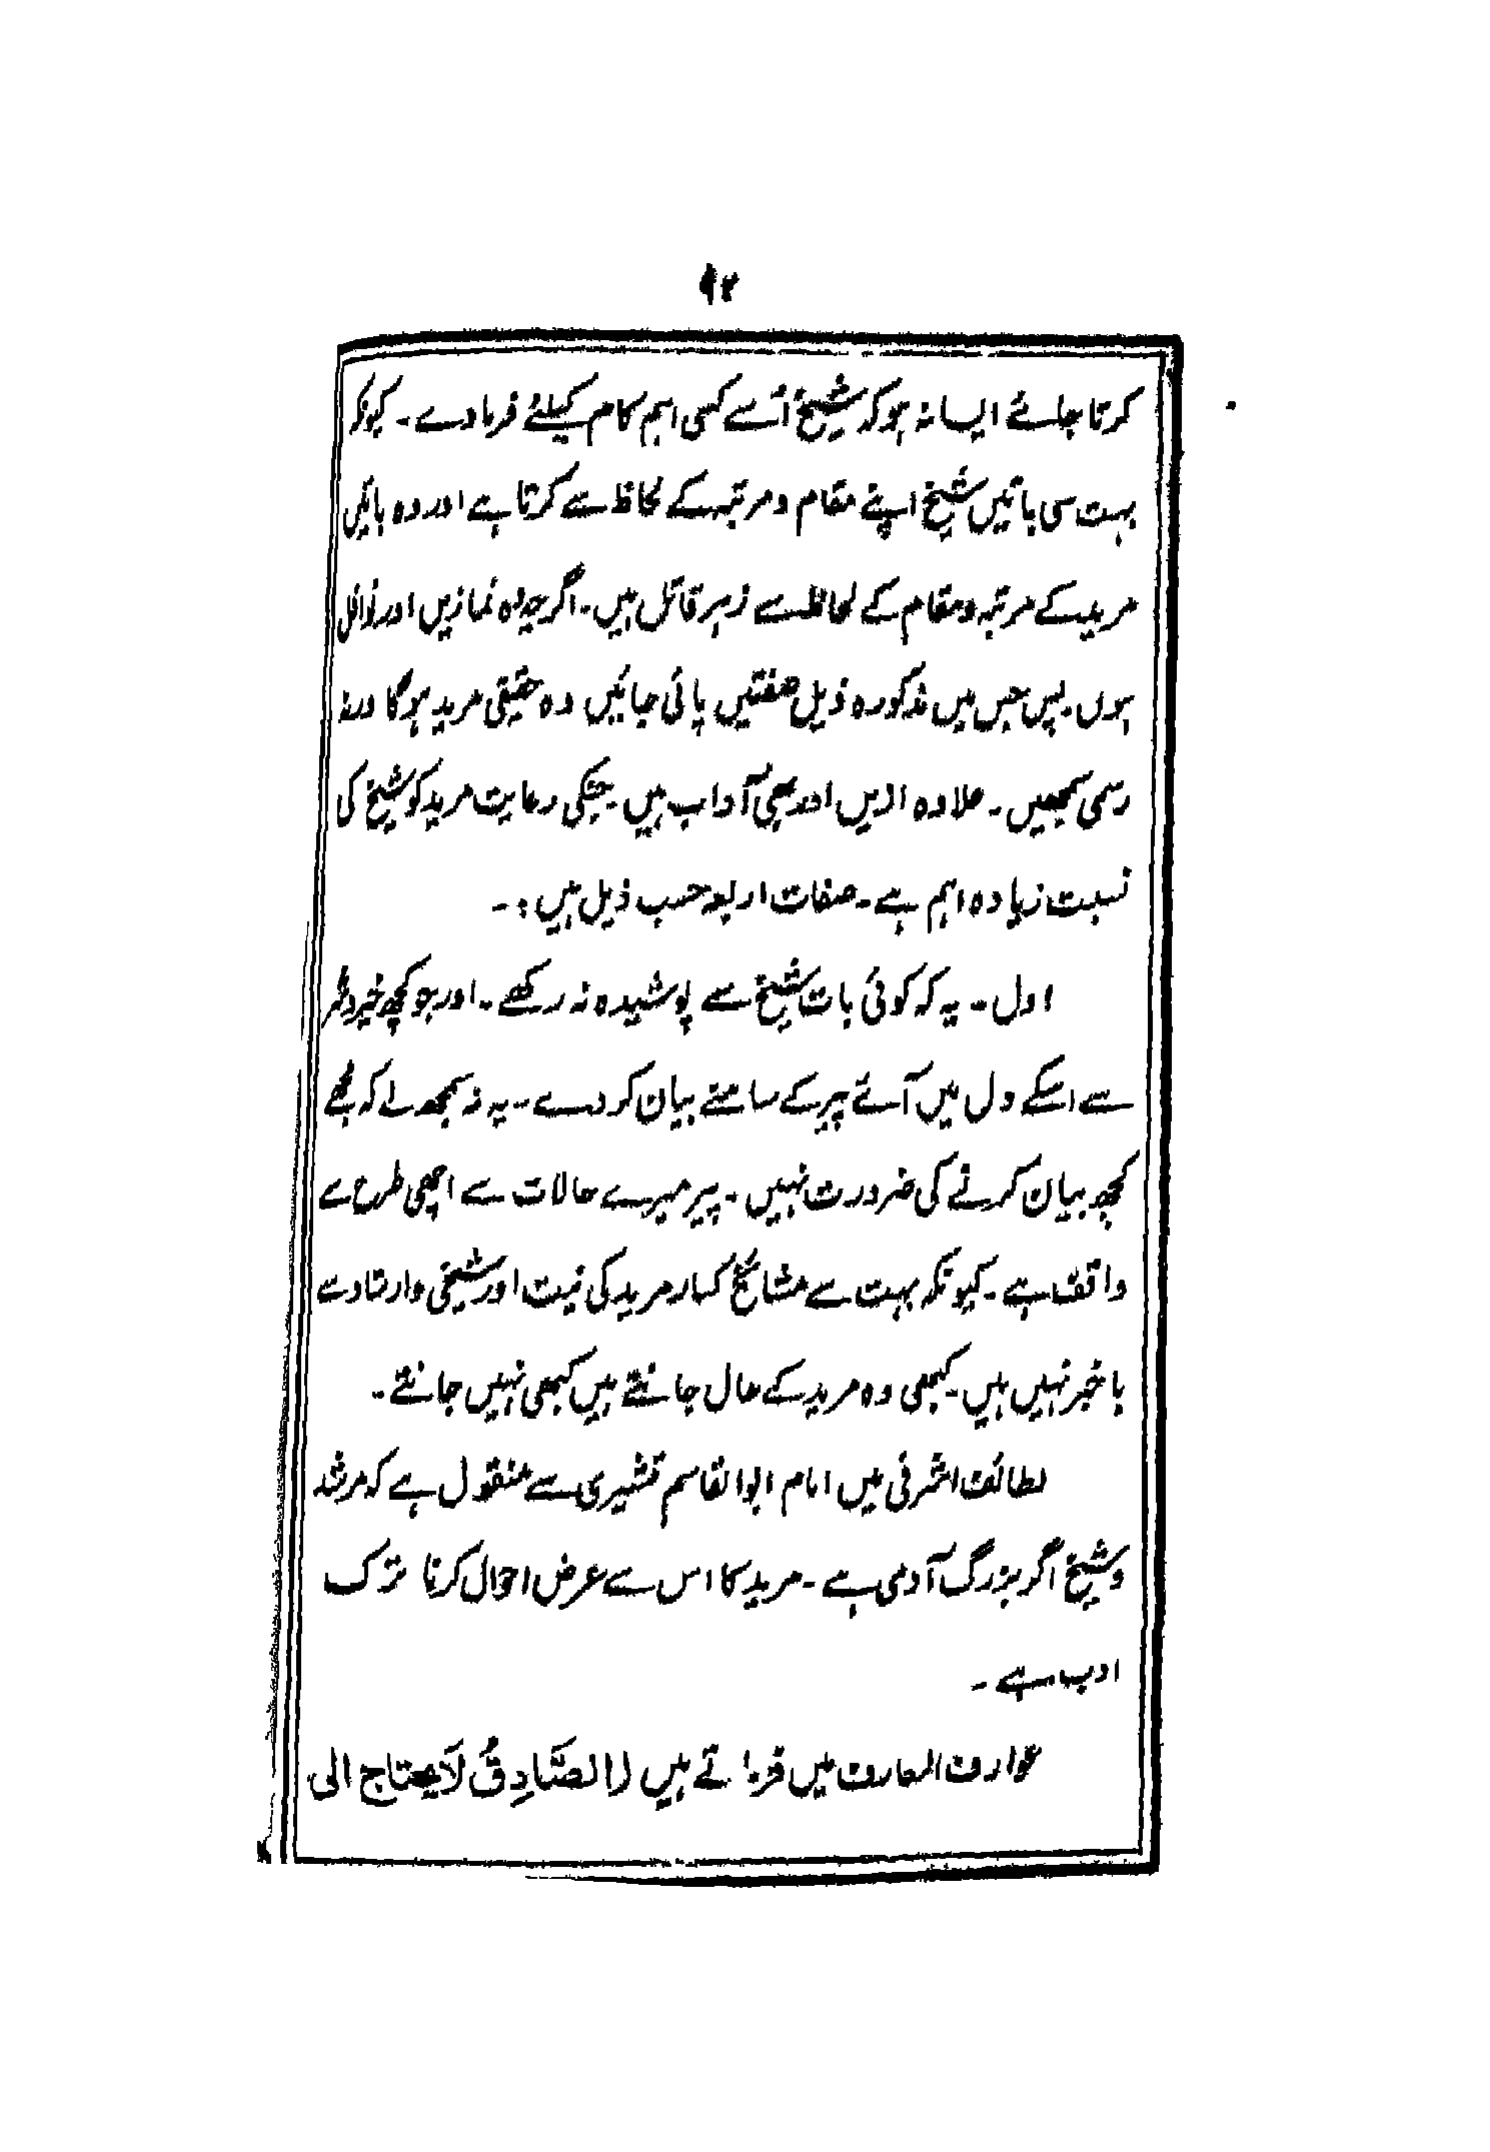 ۹۲
کرتا جائے ایسا نہ ہو کہ شیخ اُسے کسی اہم کام کیلئے فرمادے۔ کیونکہ
بہت سی باتیں شیخ اپنے مقام و مرتبہ کے لحاظ سے کرتا ہے اور وہ باتیں
مرید کے مرتبہ و مقام کے لحاظ سے زہر قاتل ہیں۔ اگرچہ وہ نمازیں اور نوافل
ہوں۔ پس جس میں مذکورہ ذیل صفتیں پائی جائیں وہ حقیقی مرید ہوگا ورنہ
رسمی سمجھیں۔ علاوہ ازیں اور بھی آداب ہیں۔ جنکی رعایت مرید کو شیخ کی
نسبت زیادہ اہم ہے۔ صفات اربعہ حسب ذیل ہیں :۔
اول۔ یہ کہ کوئی بات شیخ سے پوشیدہ نہ رکھے۔ اور جو کچھ خیر و شر
سے اسکے دل میں آئے پیر کے سامنے بیان کر دے۔ یہ نہ سمجھ لے کہ مجھے
کچھ بیان کرنے کی ضرورت نہیں۔ پیر میرے حالات سے اچھی طرح سے
واقف ہے۔ کیونکہ بہت سے مشائخ کبار مرید کی نیت اور شیخی وارشاد سے
باخبر نہیں ہیں۔ کبھی وہ مرید کے حال جانتے ہیں کبھی نہیں جانتے۔
لطائف اشرفی میں امام ابوالقاسم قشیری سے منقول ہے کہ مرشد
و شیخ اگر بزرگ آدمی ہے۔ مرید کا اس سے عرض احوال کرنا ترک
ادب ہے۔
عوارف المعارف میں فرماتے ہیں (الصَّادِقُ لَا یحتاج الی